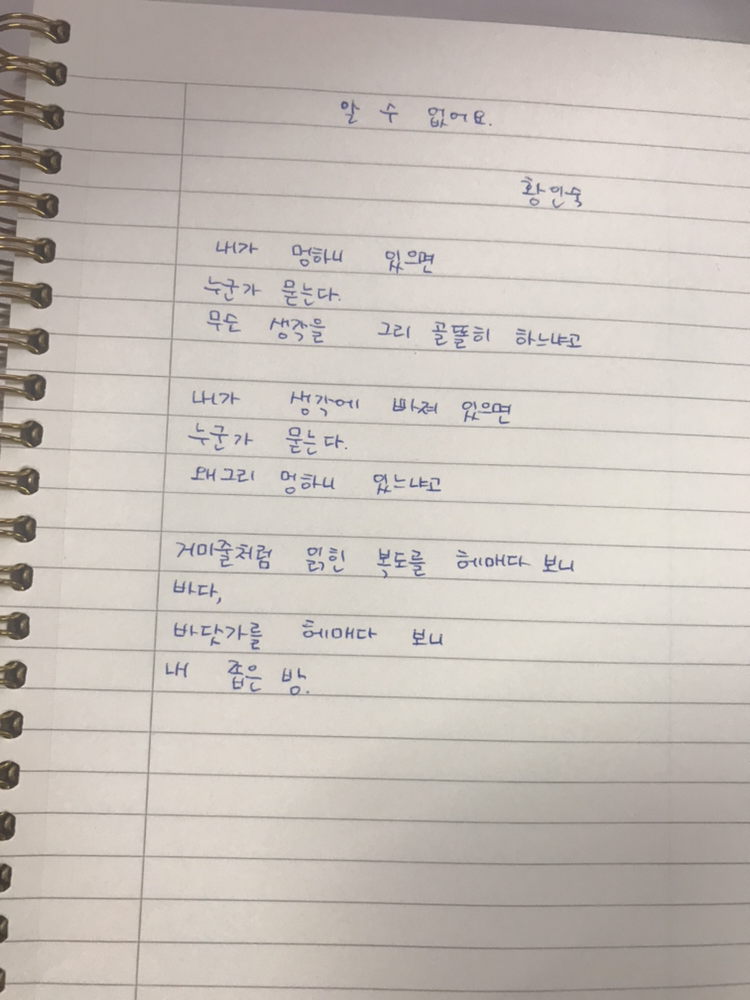 알 수 없어요.
황인숙
내가 멍하니 있으면
누군가 묻는다.
무슨 생각을 그리 골똘히 하느냐고
내가 생각에 빠져 있으면
누군가 묻는다.
왜그리 멍하니 있느냐고
거미줄처럼 얽힌 복도를 헤매다 보니
바다,
바닷가를 헤매다 보니
내 좁은 방.